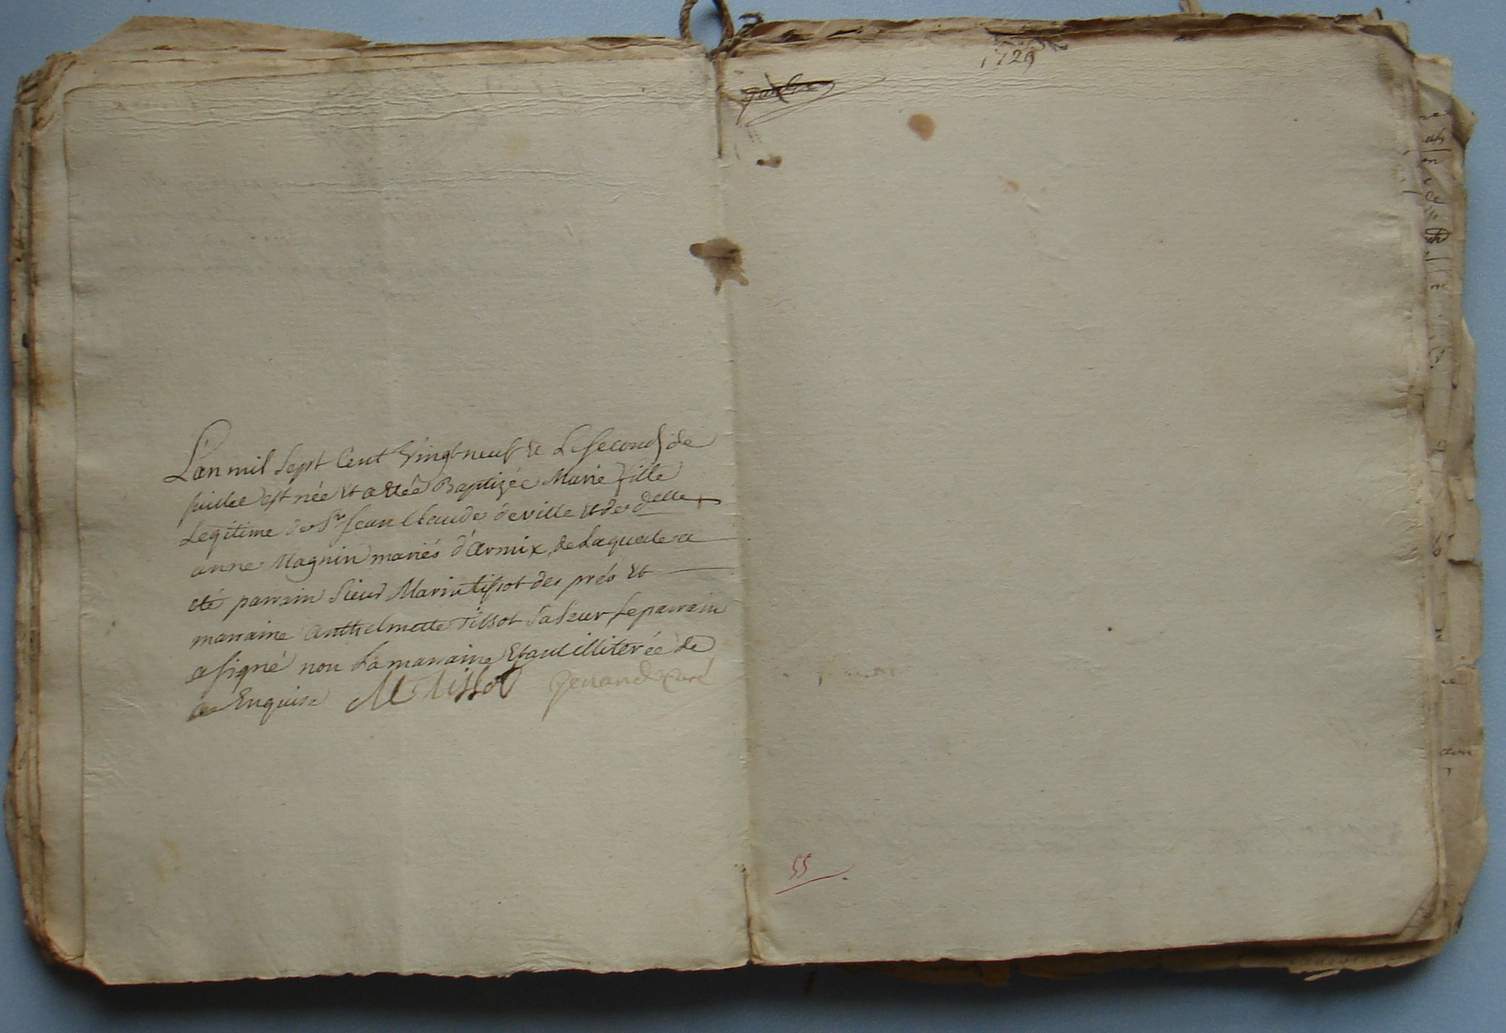 L'an mil sept cent vingt neuf & le second de
juillet est née et a etée Baptizée Marie fille
Legitime de Sr Jean Claude deville et de delle
anne Magnin mariés d'armix, de laquelle a
eté parrain Sieur Marin tissot des prés et
marraine anthelmette Tissot sa seur le parrain
a signé non la marraine etant illiterée de
ce Enquise M Tissot Gerrand curé
1729
55